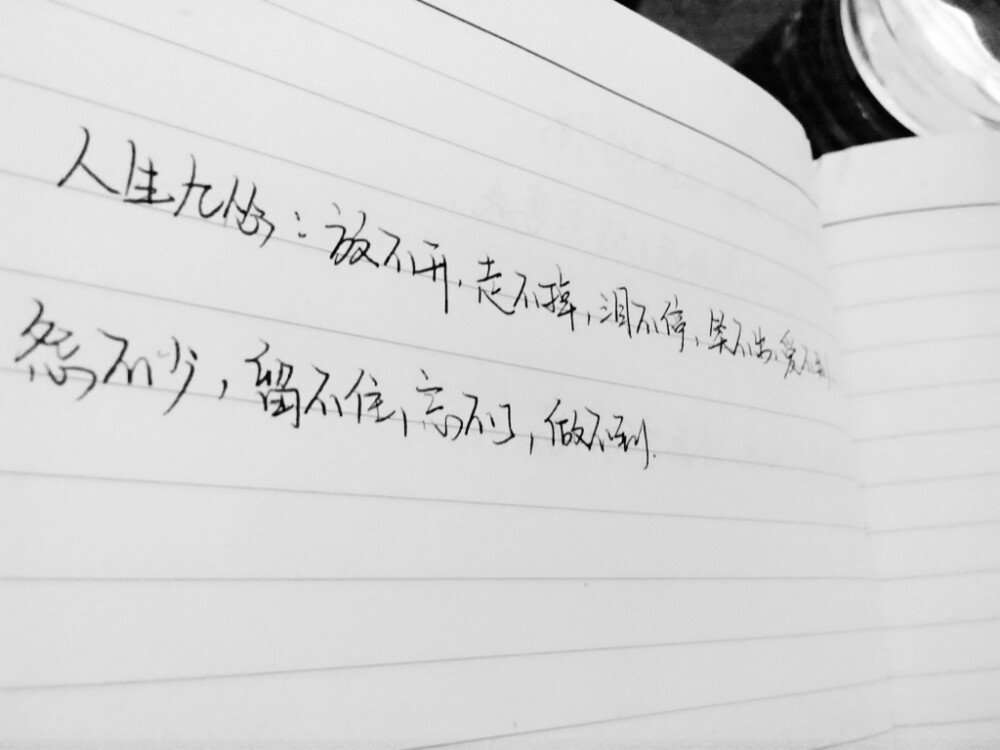 人生九伤：放不开，走不掉，泪不停，笑不出，爱不到
怨不少，留不住，忘不了，做不到.